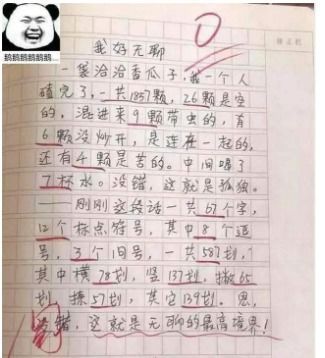 鹅鹅鹅鹅鹅鹅...
0
我好无聊
一袋洽洽香瓜子，我一个人
磕完了，一共1857颗，26颗是空
的，混进来9颗带虫的，有
6颗没炒开，是连在一起的，
还有4颗是苦的。中间喝了
7杯水。没错，这就是孤独。
——刚刚这段话一共67个字，
12个标点符号，其中8个逗
号，3个句号，一共587划，
其中横78划，竖137划，撇65
划，捺57划，其它139划。恩，
没错，这就是无聊的最高境界！